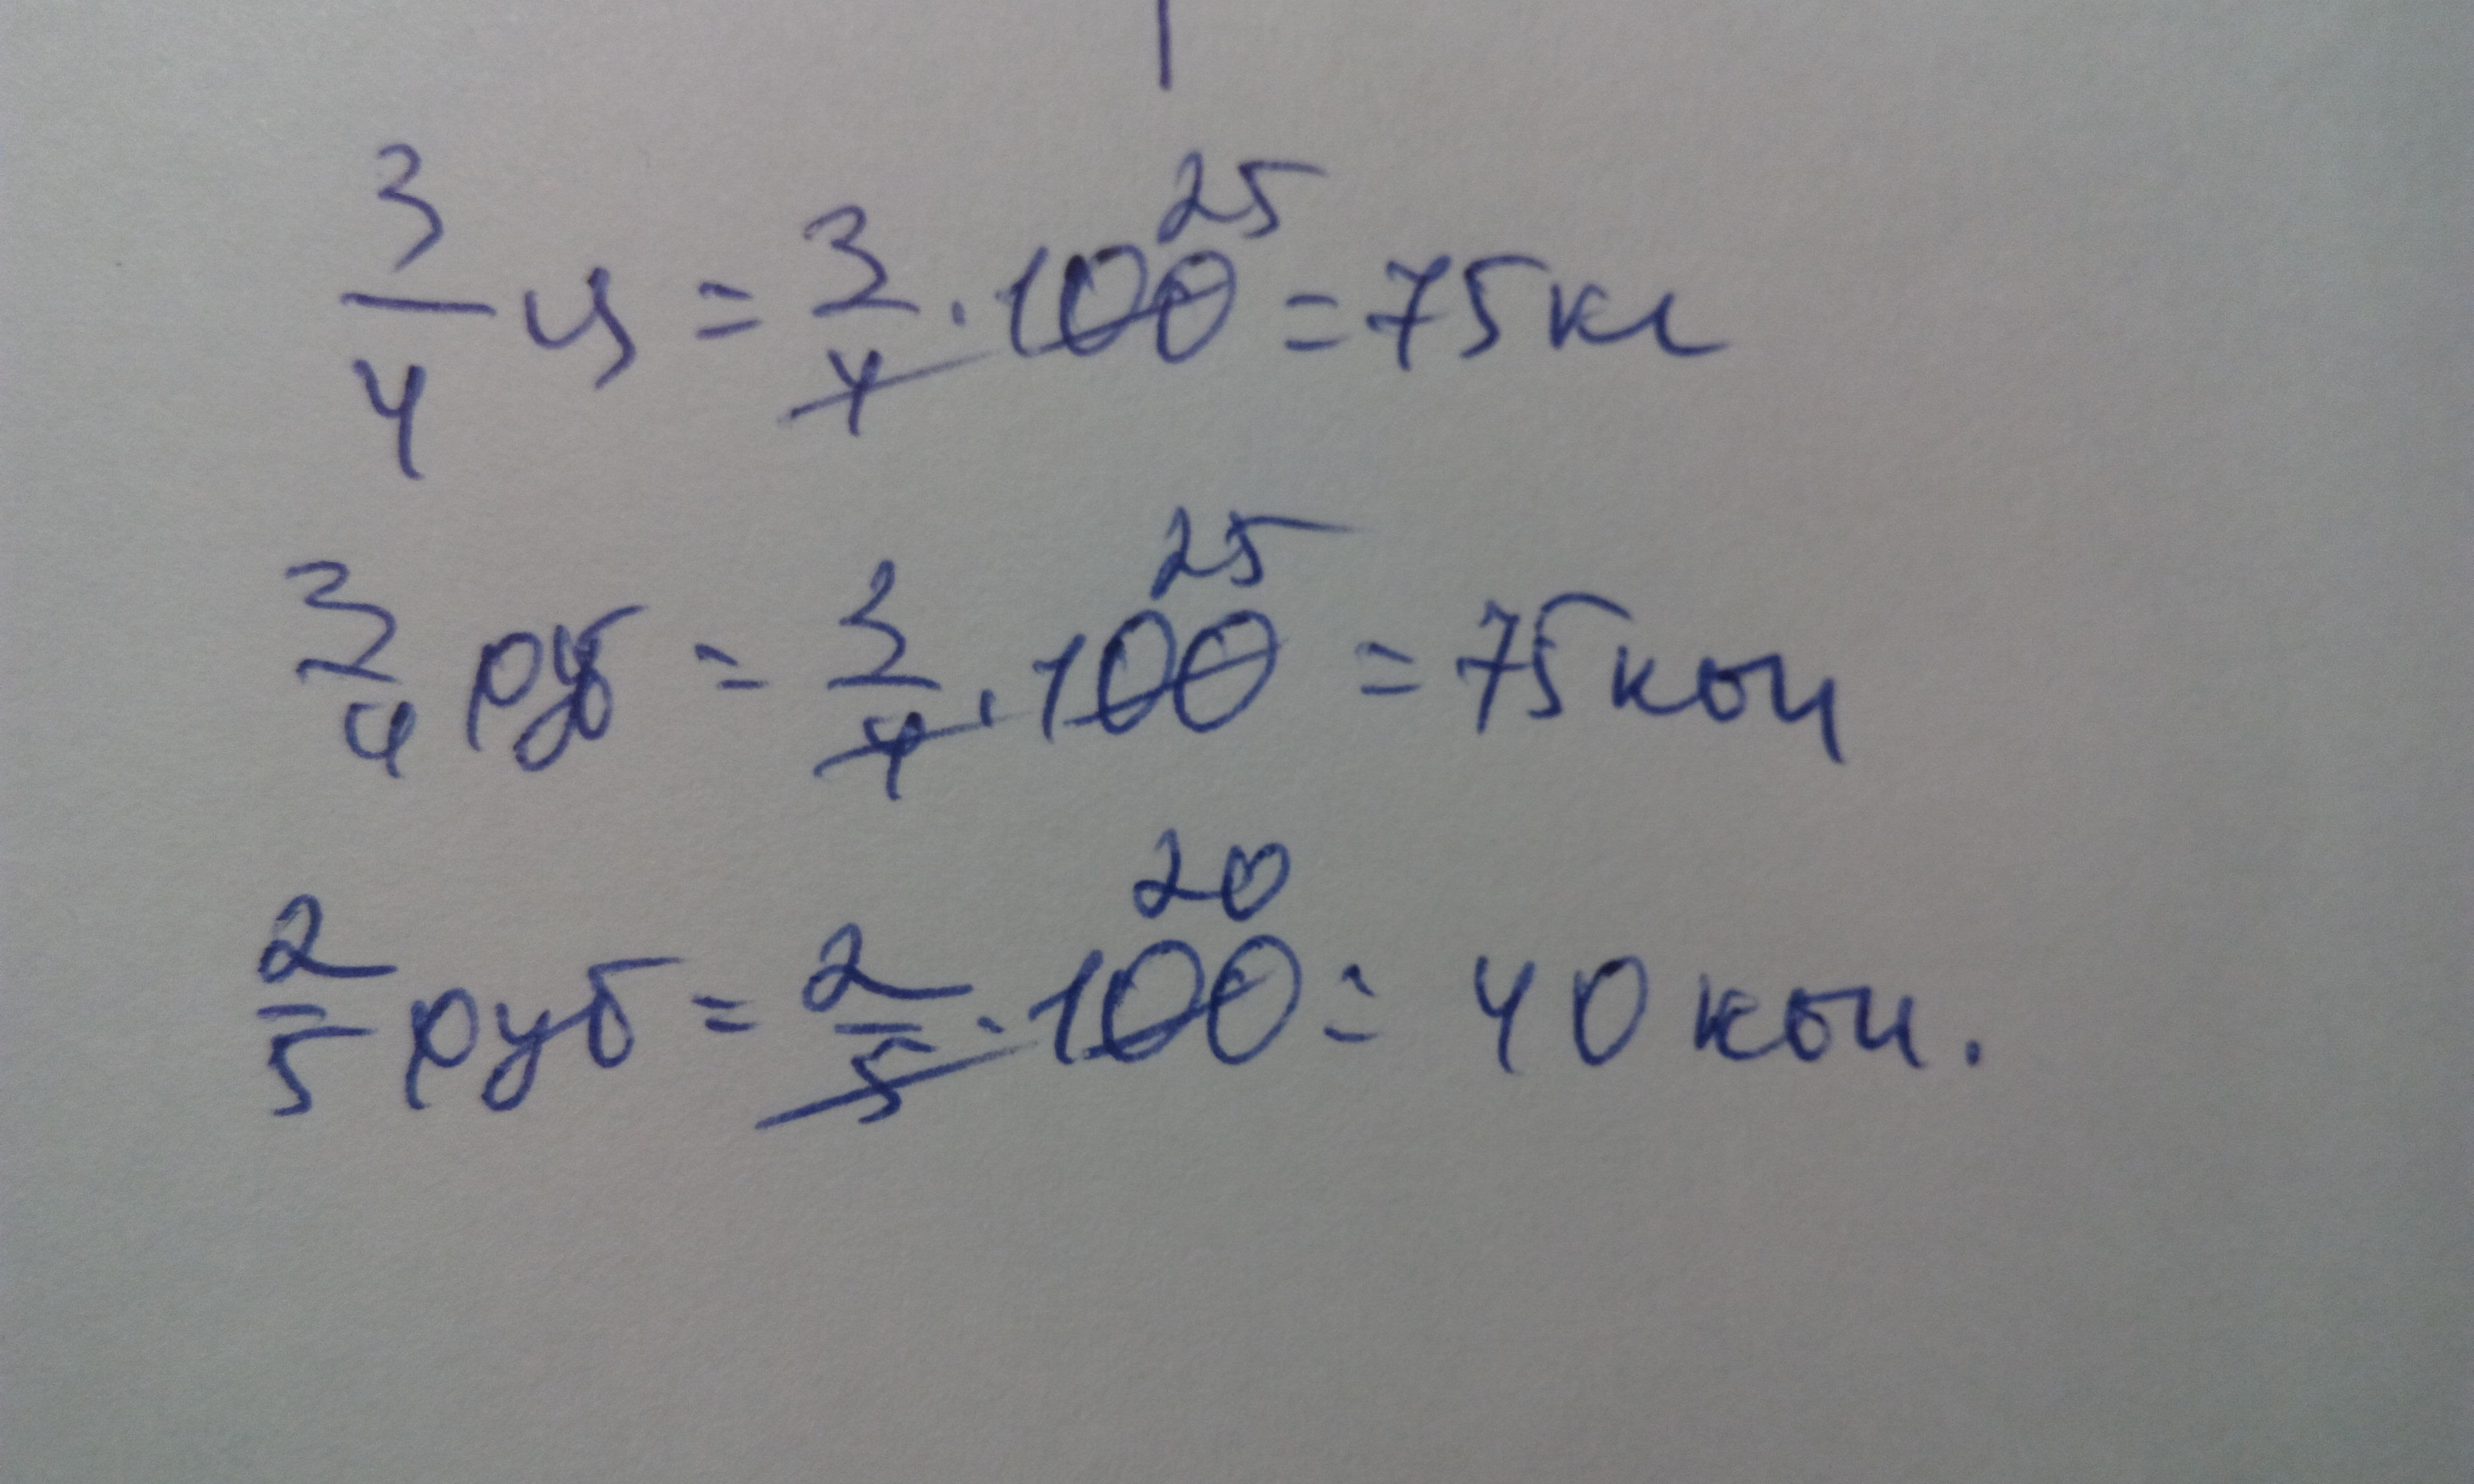 3/4 ц = 3/4 · 100 25 = 75 кг
3/4 руб = 3/4 · 100 25 = 75 коп
2/5 руб = 2/5 · 100 20 = 40 коп.